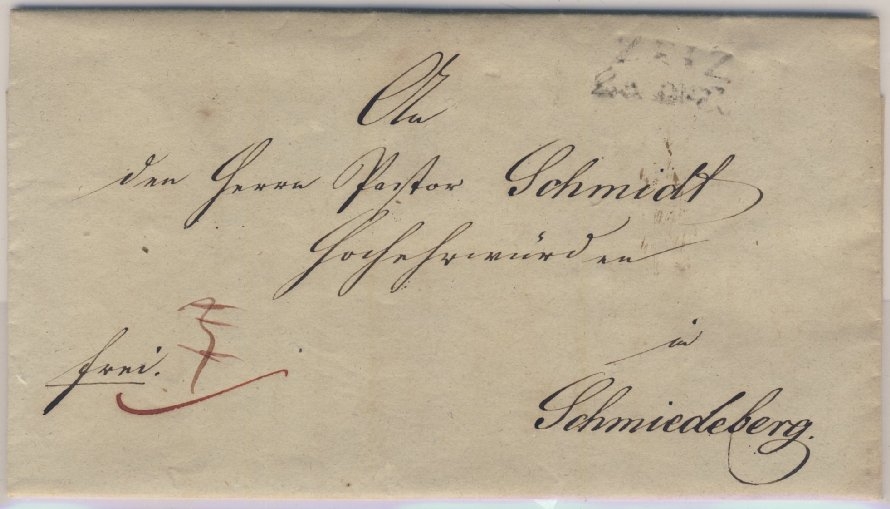 ZEIZ
An
den Herrn Pastor Schmidt
Hochehrwürden
frei.
in
Schmiedeberg.